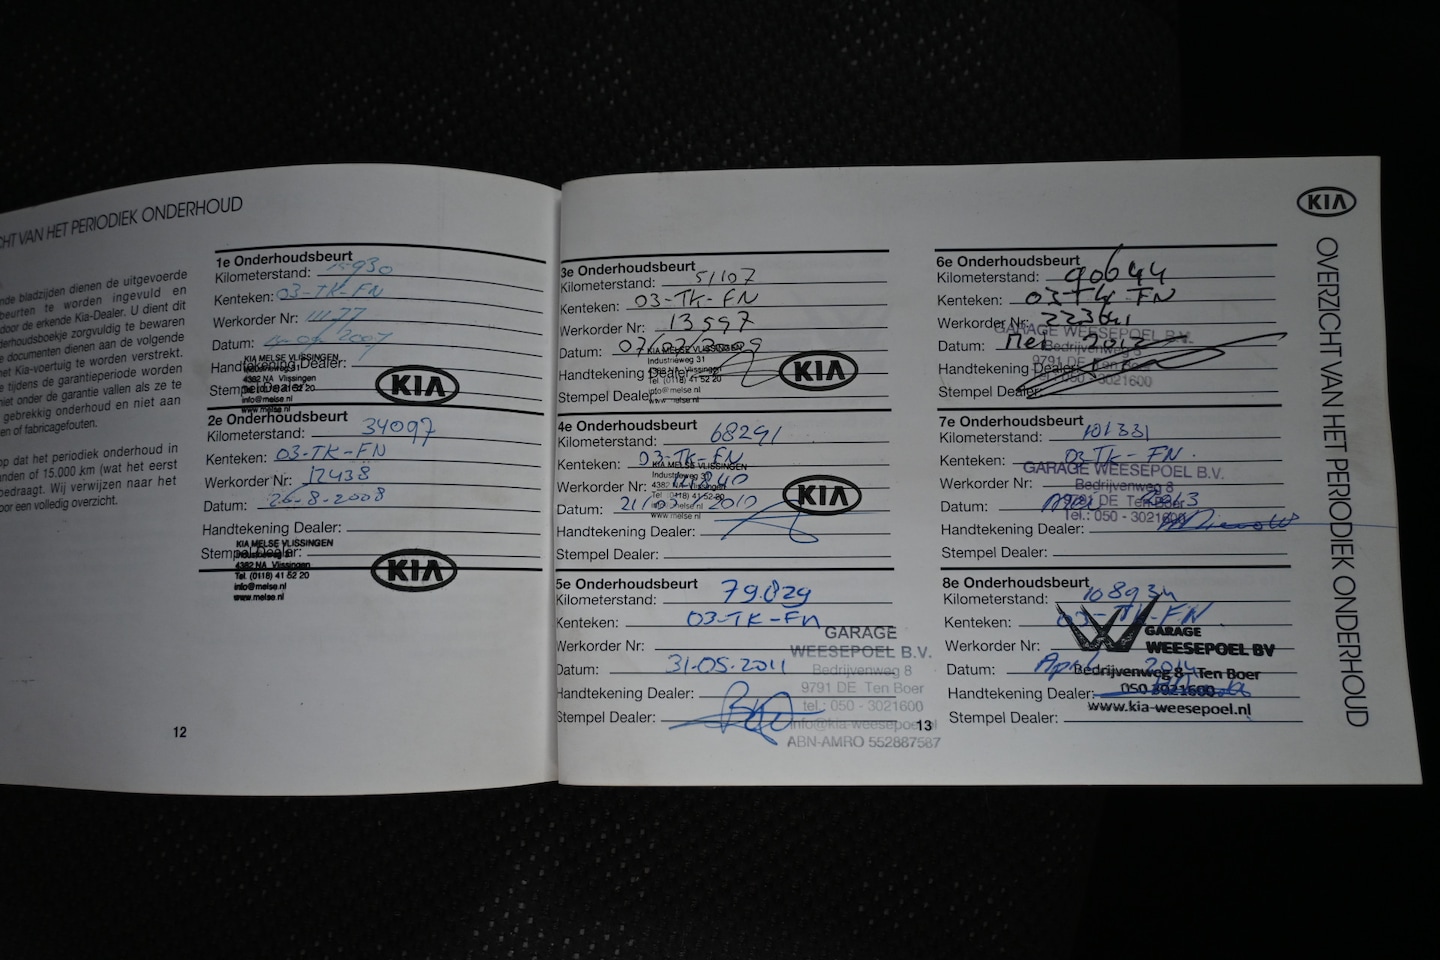 CHT VAN HET PERIODIEK ONDERHOUD
nde bladzijden dienen de uitgevoerde
beurten te worden ingevuld en
door de erkende Kia-Dealer. U dient dit
derhoudsboekje zorgvuldig te bewaren
e documenten dienen aan de volgende
met Kia-voertuig te worden verstrekt.
e tijdens de garantieperiode worden
niet onder de garantie vallen als ze te
gebrekkig onderhoud en niet aan
en of fabricagefouten.
op dat het periodiek onderhoud in
anden of 15.000 km (wat het eerst
bedraagt. Wij verwijzen naar het
oor een volledig overzicht.
1e Onderhoudsbeurt
Kilometerstand: 15930
Kenteken: 03-TK-FN
Werkorder Nr:
Datum: 2007
Handtekening Dealer:
Stempel Dealer:
KIA MELSE VLISSINGEN
Industrieweg 31
4382 NA Vlissingen
Tel. (0118) 41 52 20
info@melse.nl
www.melse.nl
KIA
2e Onderhoudsbeurt
Kilometerstand: 34097
Kenteken: 03-TK-FN
Werkorder Nr: 12438
Datum: 26-8-2008
Handtekening Dealer:
Stempel Dealer:
KIA MELSE VLISSINGEN
Industrieweg 31
4382 NA Vlissingen
Tel. (0118) 41 52 20
info@melse.nl
www.melse.nl
KIA
12
3e Onderhoudsbeurt
Kilometerstand: 51107
Kenteken: 03-TK-FN
Werkorder Nr: 13597
Datum: 07/02/2009
Handtekening Dealer:
Stempel Dealer:
KIA MELSE VLISSINGEN
Industrieweg 31
4382 NA Vlissingen
Tel. (0118) 41 52 20
info@melse.nl
www.melse.nl
KIA
4e Onderhoudsbeurt
Kilometerstand: 68291
Kenteken: 03-TK-FN
Werkorder Nr:
Datum: 21/03/2010
Handtekening Dealer:
Stempel Dealer:
KIA MELSE VLISSINGEN
Industrieweg 31
4382 NA Vlissingen
Tel. (0118) 41 52 20
info@melse.nl
www.melse.nl
KIA
5e Onderhoudsbeurt
Kilometerstand: 79.829
Kenteken: 03-TK-FN
Werkorder Nr:
Datum: 31-05-2011
Handtekening Dealer:
Stempel Dealer:
GARAGE
WEESEPOEL B.V.
Bedrijvenweg 8
9791 DE Ten Boer
tel.: 050 - 3021600
info@kia-weesepoel.nl
ABN-AMRO 552887587
13
KIA
OVERZICHT VAN HET PERIODIEK ONDERHOUD
6e Onderhoudsbeurt
Kilometerstand: 90644
Kenteken: 03-TK-FN
Werkorder Nr: 223641
Datum: Mei 2012
Handtekening Dealer:
Stempel Dealer:
GARAGE WEESEPOEL B.V.
Bedrijvenweg 8
9791 DE Ten Boer
Tel.: 050 - 3021600
7e Onderhoudsbeurt
Kilometerstand: 101331
Kenteken: 03-TK-FN
Werkorder Nr:
Datum: 2013
Handtekening Dealer:
Stempel Dealer:
GARAGE WEESEPOEL B.V.
Bedrijvenweg 8
9791 DE Ten Boer
Tel.: 050 - 3021600
8e Onderhoudsbeurt
Kilometerstand: 108934
Kenteken: 03-TK-FN
Werkorder Nr:
Datum: April 2014
Handtekening Dealer:
Stempel Dealer:
GARAGE
WEESEPOEL BV
Bedrijvenweg 8 Ten Boer
050 3021600
www.kia-weesepoel.nl